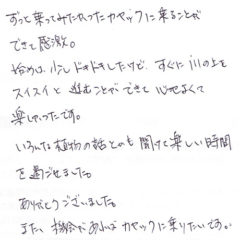 ずっと乗ってみたかったカヤックに乗ることが
できて感激。
始めは、少しドキドキしたけど、すぐに川の上を
スイスイと進むことができて心地よくて
楽しかったです。
いろんな植物の話とかも聞けて楽しい時間
を過ごせました。
ありがとうございました。
また、機会があればカヤックに乗りたいです。